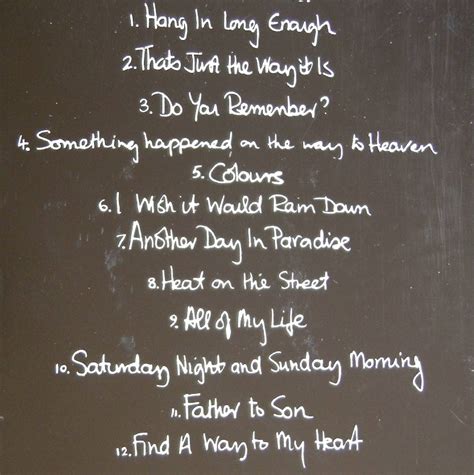 1. Hang In Long Enough
2. Thats Just the Way it Is
3. Do You Remember?
4. Something happened on the way to Heaven
5. Colours
6. I Wish it Would Rain Down
7. Another Day In Paradise
8. Heat on the Street
9. All of My Life
10. Saturday Night and Sunday Morning
11. Father to Son
12. Find A Way to My Heart